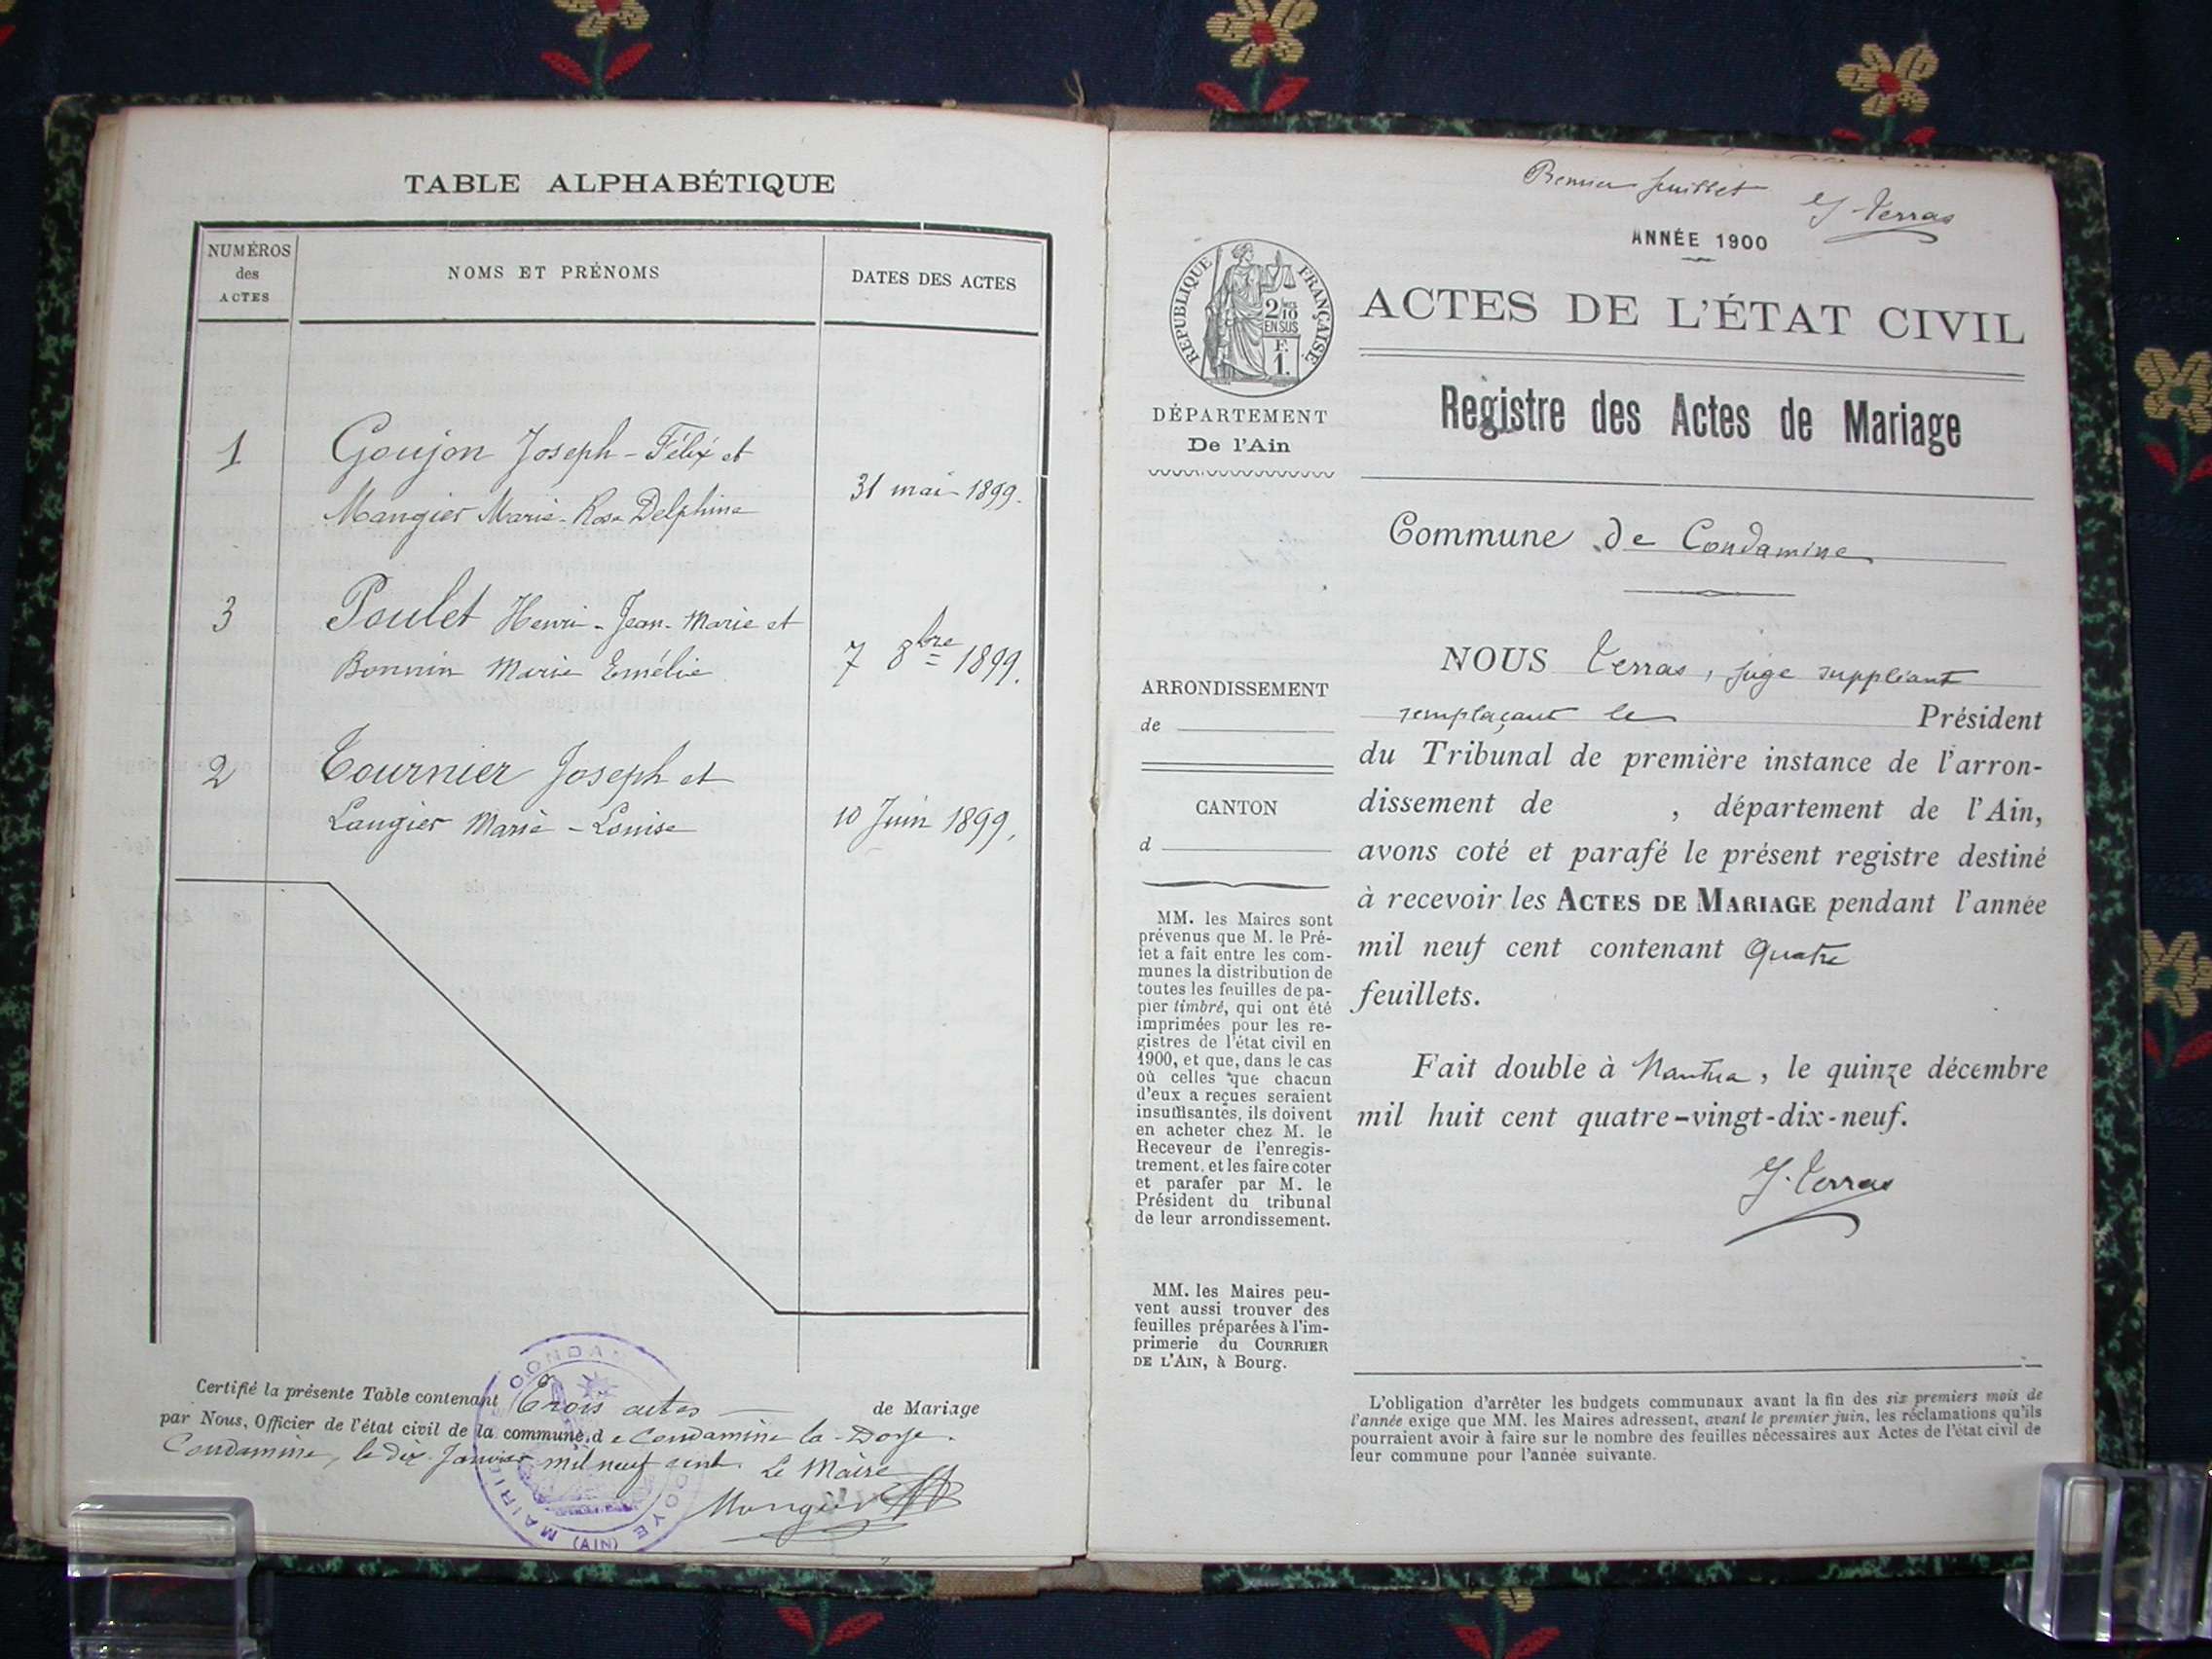 TABLE ALPHABÉTIQUE
NUMÉROS
des
ACTES
NOMS ET PRÉNOMS
DATES DES ACTES
1
Goujon Joseph-Félix et
Mangier Marie-Rose Delphine
31 mai 1899.
3
Poulet Henri-Jean-Marie et
Bonnin Marie Emélie
7 8bre 1899.
2
Tournier Joseph et
Laugier Marie-Louise
10 Juin 1899.
Certifié la présente Table contenant Trois actes de Mariage
par Nous, Officier de l'état civil de la commune de Condamine la-Doye.
Condamine, le dix Janvier mil neuf cent. Le Maire
MAIRIE CONDAM DOYE (AIN)
Premier feuillet
Terras
ANNÉE 1900
RÉPUBLIQUE FRANÇAISE
2/10
EN SUS
F.
1.
ACTES DE L'ÉTAT CIVIL
DÉPARTEMENT
De l'Ain
Registre des Actes de Mariage
Commune de Condamine
ARRONDISSEMENT
de
CANTON
d
MM. les Maires sont
prévenus que M. le Pré-
fet a fait entre les com-
munes la distribution de
toutes les feuilles de pa-
pier timbré, qui ont été
imprimées pour les re-
gistres de l'état civil en
1900, et que, dans le cas
où celles que chacun
d'eux a reçues seraient
insuffisantes, ils doivent
en acheter chez M. le
Receveur de l'enregis-
trement, et les faire coter
et parafer par M. le
Président du tribunal
de leur arrondissement.
MM. les Maires peu-
vent aussi trouver des
feuilles préparées à l'im-
primerie du COURRIER
DE L'AIN, à Bourg.
NOUS Terras, juge suppléant
remplaçant le Président
du Tribunal de première instance de l'arron-
dissement de , département de l'Ain,
avons coté et parafé le présent registre destiné
à recevoir les ACTES DE MARIAGE pendant l'année
mil neuf cent contenant Quatre
feuillets.
Fait double à Nantua, le quinze décembre
mil huit cent quatre-vingt-dix-neuf.
Terras
L'obligation d'arrêter les budgets communaux avant la fin des six premiers mois de
l'année exige que MM. les Maires adressent, avant le premier juin, les réclamations qu'ils
pourraient avoir à faire sur le nombre des feuilles nécessaires aux Actes de l'état civil de
leur commune pour l'année suivante.